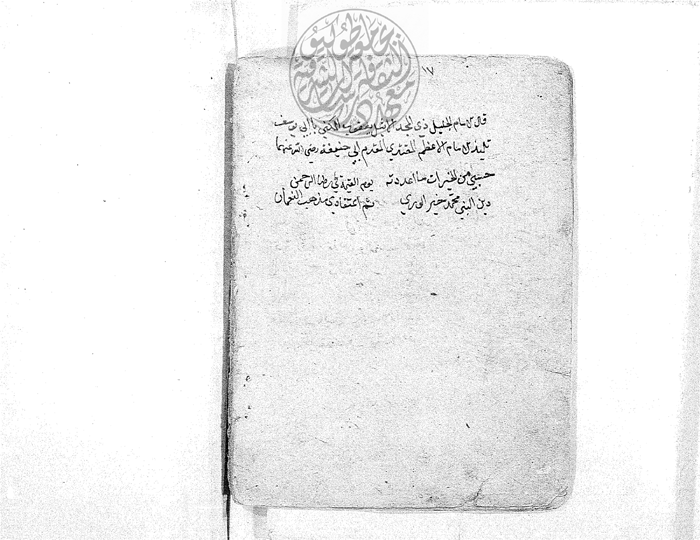 ١٧
قال الامام الجليل ذي المجد الاثيل يعقوب المكنى بابي يوسف
تلميذ الامام الاعظم المقتدى المقدم ابي حنيفة رضي الله عنهما
حسبي من الخيرات ما اعددته يوم القيمة في رضى الرحمن
دين النبي محمد خير الورى ثم اعتقادي مذهب النعمان